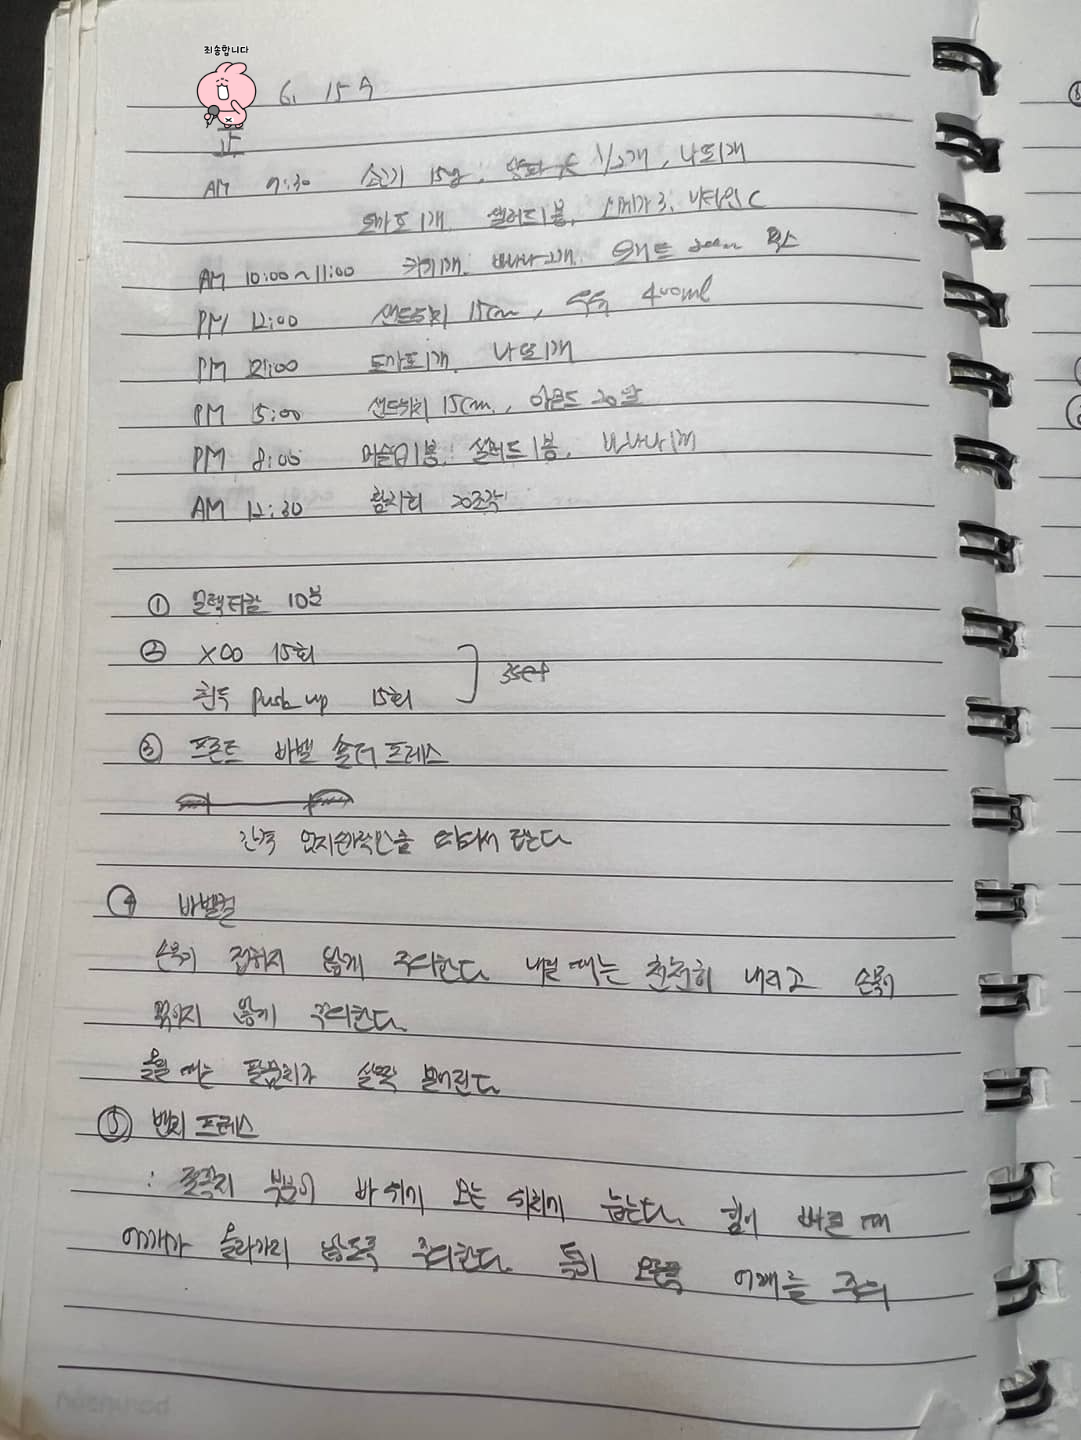 죄송합니다
6. 15 수
AM 9:30 소고기 15g, 1/2개, 나또1개
토마토1개, 샐러드1봉, 오메가3, 비타민C
AM 10:00~11:00 바나나 2개,
PM 12:00 샌드위치 15cm, 우유 400ml
PM 2:00 토마토1개, 나또1개
PM 5:00 샌드위치 15cm, 아몬드 20알
PM 8:00 머슬밀1봉, 샐러드1봉, 바나나1개
AM 12:30 참치회 20조각
① 일렉티컬 10분
② XOO 15회
친두 push up 15회
3set
③ 프론트 바벨 숄더 프레스
간격 엄지손가락만을 따라서 편다
④ 바벨컬
손목이 접히지 않게 주의한다. 내릴 때는 천천히 내리고 손목이
꺾이지 않게 주의한다.
올릴 때는 팔꿈치가 살짝
⑤ 벤치 프레스
: 부분이 바 위치가 오는 위치에 눕는다. 힘이 빠질 때
어깨가 올라가지 않도록 주의한다. 특히 오른쪽 어깨를 주의